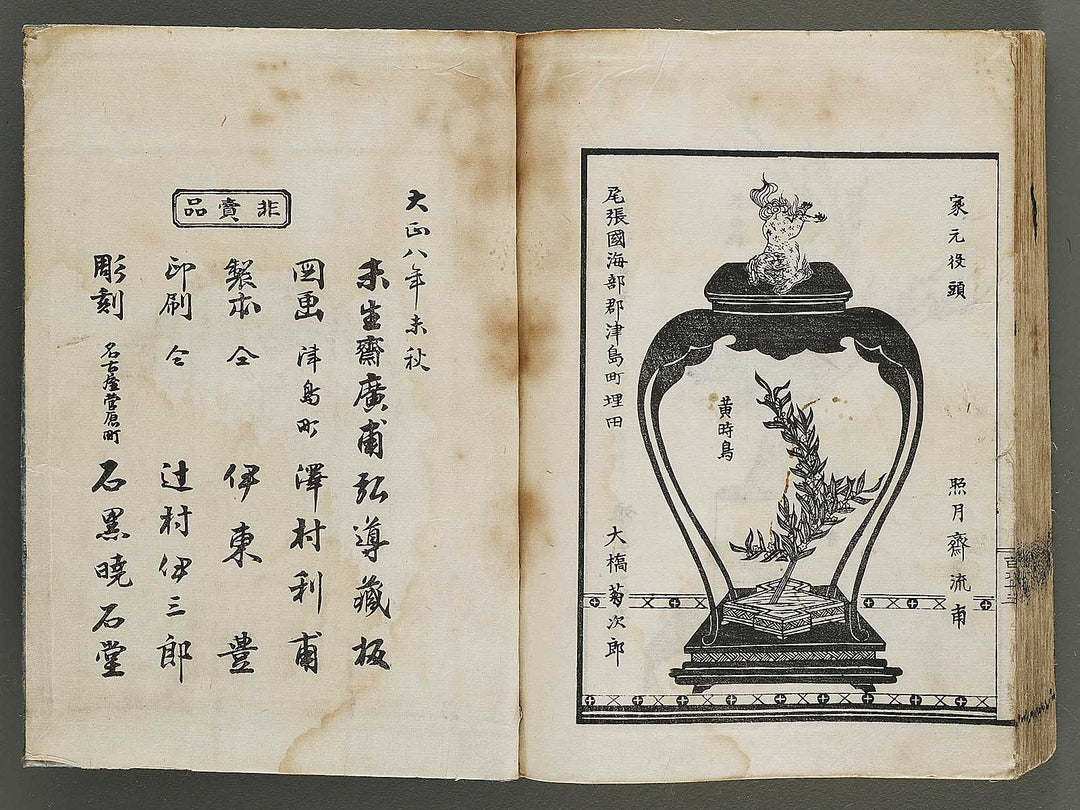 家元役頭
照月齋流甫
黄時鳥
尾張國海部郡津島町埋田
大橋菊次郎
大正八年未秋
未生齋廣甫弘導藏板
図画 津島町 澤村利甫
製本 仝 伊東豊
印刷 仝 辻村伊三郎
彫刻 名古屋菅原町 石黒曉石堂
非賣品